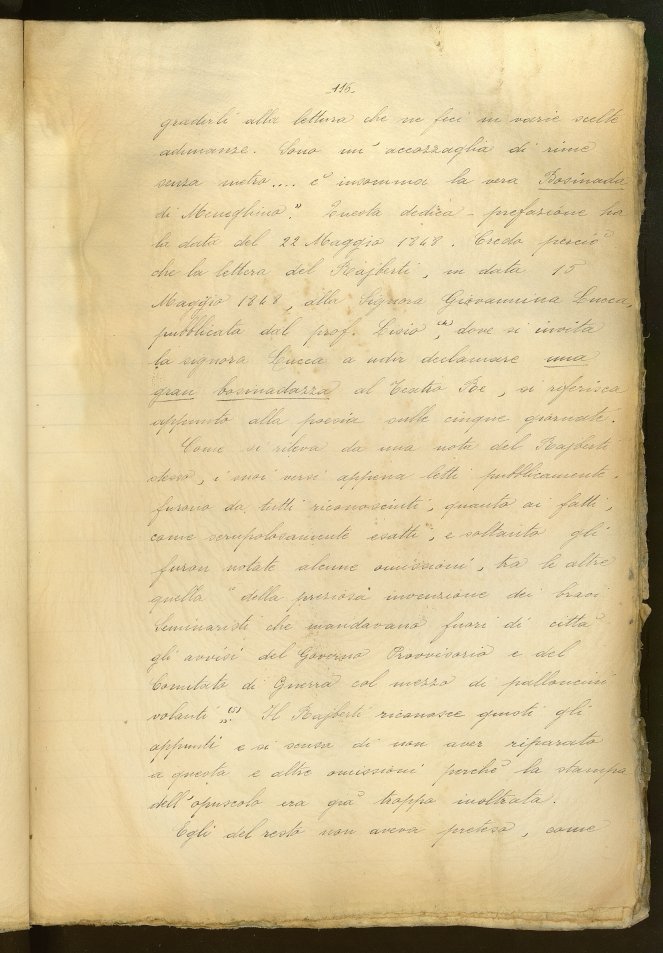 -116-
gradirli alla lettura che ne feci in varie scelte
adunanze. Sono un' accozzaglia di rime
senza metro.... è insomma la vera Bosinada
di Meneghino". Questa dedica - prefazione ha
la data del 22 Maggio 1848. Credo perciò
che la lettera del Rajberti, in data 15
Maggio 1848, alla Signora Giovannina Lucca,
pubblicata dal prof. Lisio (4), dove si invita
la signora Lucca a udir declamare una
gran bosinadazza al Teatro Re, si referisca
appunto alla poesia sulle cinque giornate.
Come si rileva da una nota del Rajberti
stesso, i suoi versi appena letti pubblicamente
furono da tutti riconosciuti, quanto ai fatti,
come scrupolosamente esatti, e soltanto gli
furon notate alcune omissioni, tra le altre
quella "della preziosa invenzione dei bravi
Seminaristi che mandavano fuori di città
gli avvisi del Governo Provvisorio e del
Comitato di Guerra col mezzo di palloncini
volanti (5)". Il Rajberti riconosce giusti gli
appunti e si scusa di non aver riparato
a questa e altre omissioni perchè la stampa
dell'opuscolo era già troppo inoltrata.
Egli del resto non aveva preteso, come